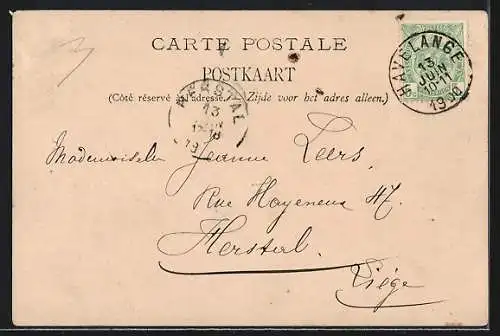 CARTE POSTALE
POSTKAART
(Côté réservé à l'adresse. Zijde voor het adres alleen.)
HAVELANGE
13
JUIN
10-11
1900
HERSTAL
13
Mademoiselle Jeanne Leers,
Rue Hayeneux 47
Herstal.
Liége